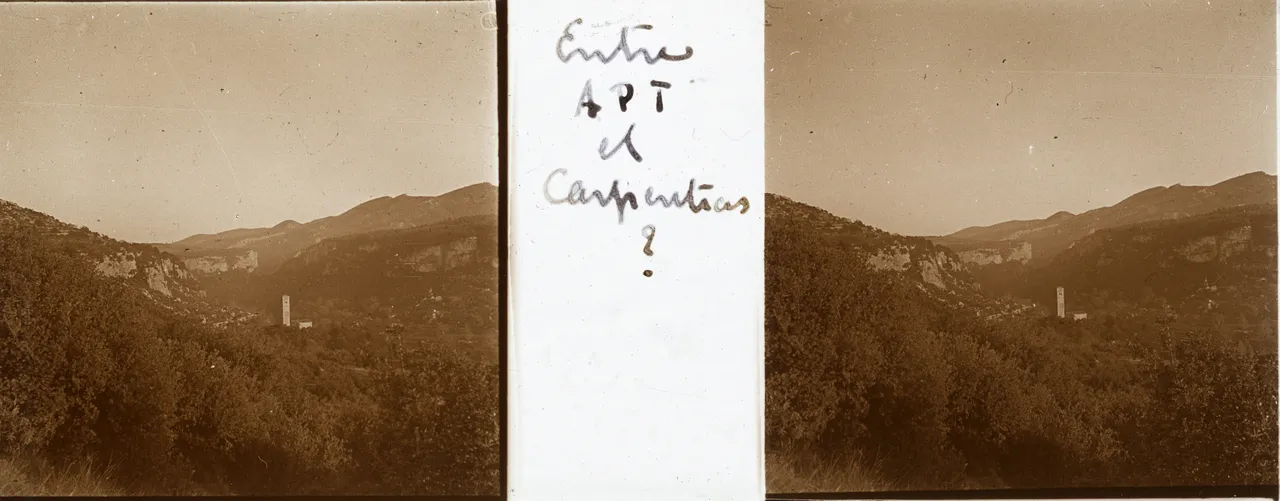 Entre
APT
et
Carpentras
?